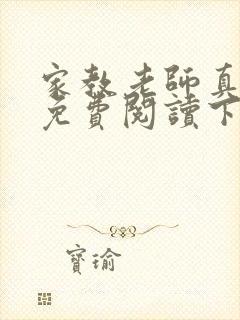 家教老師真
免費閱讀下
寶瑜